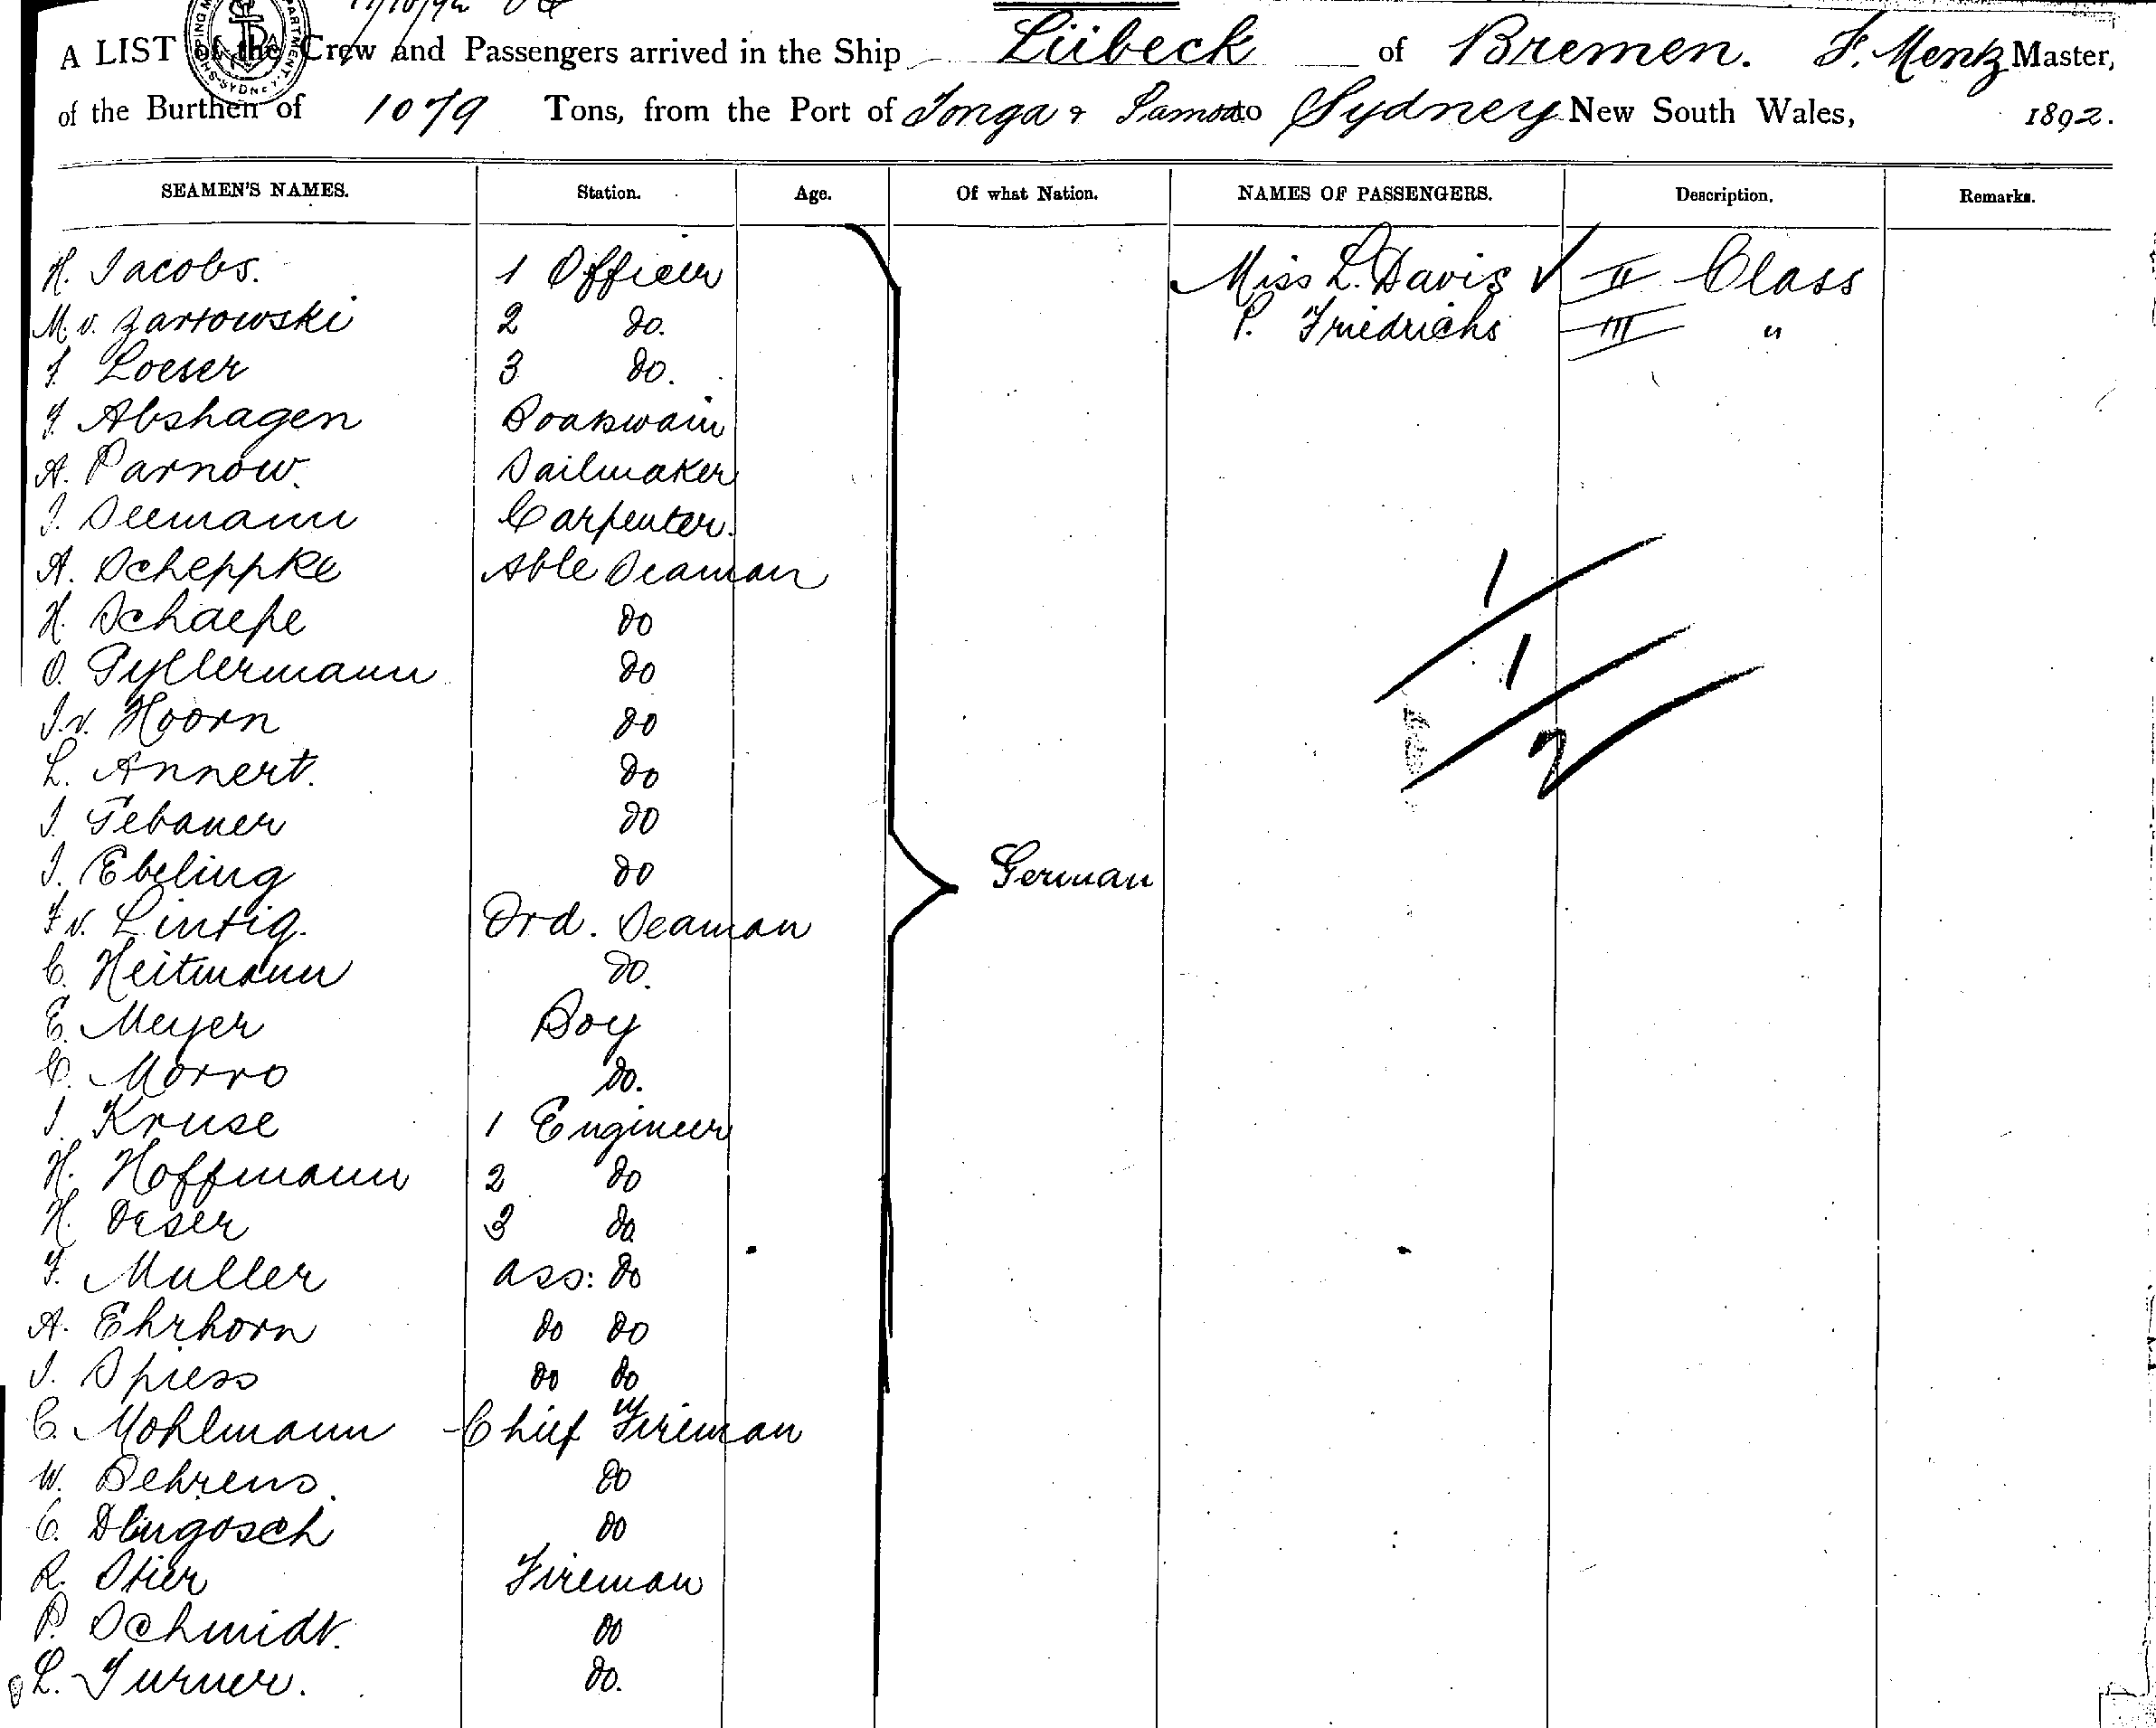 A LIST of the Crew and Passengers arrived in the Ship Lübeck of Bremen. F. Mentz Master,
of the Burthen of 1079 Tons, from the Port of Tonga & Samoa to Sydney New South Wales, 1892.
SEAMEN'S NAMES. Station. Age. Of what Nation. NAMES OF PASSENGERS. Description. Remarks.
H. Jacobs. 1 Officer Miss L. Davis ✓ II Class
M. v. Zartowski 2 do. P. Friedrichs III "
J. Loeser 3 do.
J. Abshagen Boatswain
A. Parnow. Sailmaker
J. Seemann Carpenter.
A. Scheppke Able Seaman 1
H. Schaepe do
O. Gyllermann do 1
J. v. Hoorn do
L. Annert. do 2
J. Gebauer do
J. Ebeling do German
F. v. Lintig. Ord. Seaman
C. Heitmann do.
E. Meyer Boy
C. Morro do.
J. Kruse 1 Engineer
H. Hoffmann 2 do
H. Oeser 3 do
F. Muller ass: do
A. Ehrhorn do do
J. Spiess do do
C. Mohlmann Chief Fireman
W. Behrens. do
C. Dlugosch do
R. Stier Fireman
P. Schmidt. do
L. Turner. do.